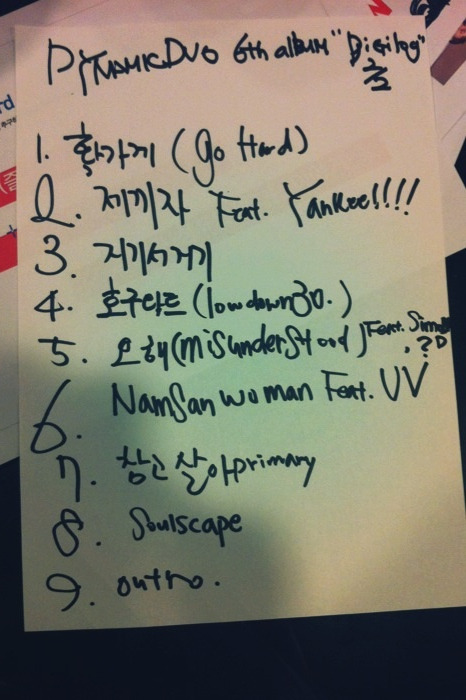 DYNAMICDUO 6th album "Digilog"
1. 확가게 (go Hard)
2. 제끼자 Feat. Yankee!!!!
3. 거기서거기
4. 호구타르트 (lowdown30.)
5. 오해 (misunderstood) Feat. Simo
.?D
6. NamSan woman Feat. UV
7. 참고살아 primary
8. Soulscape
9. outro.